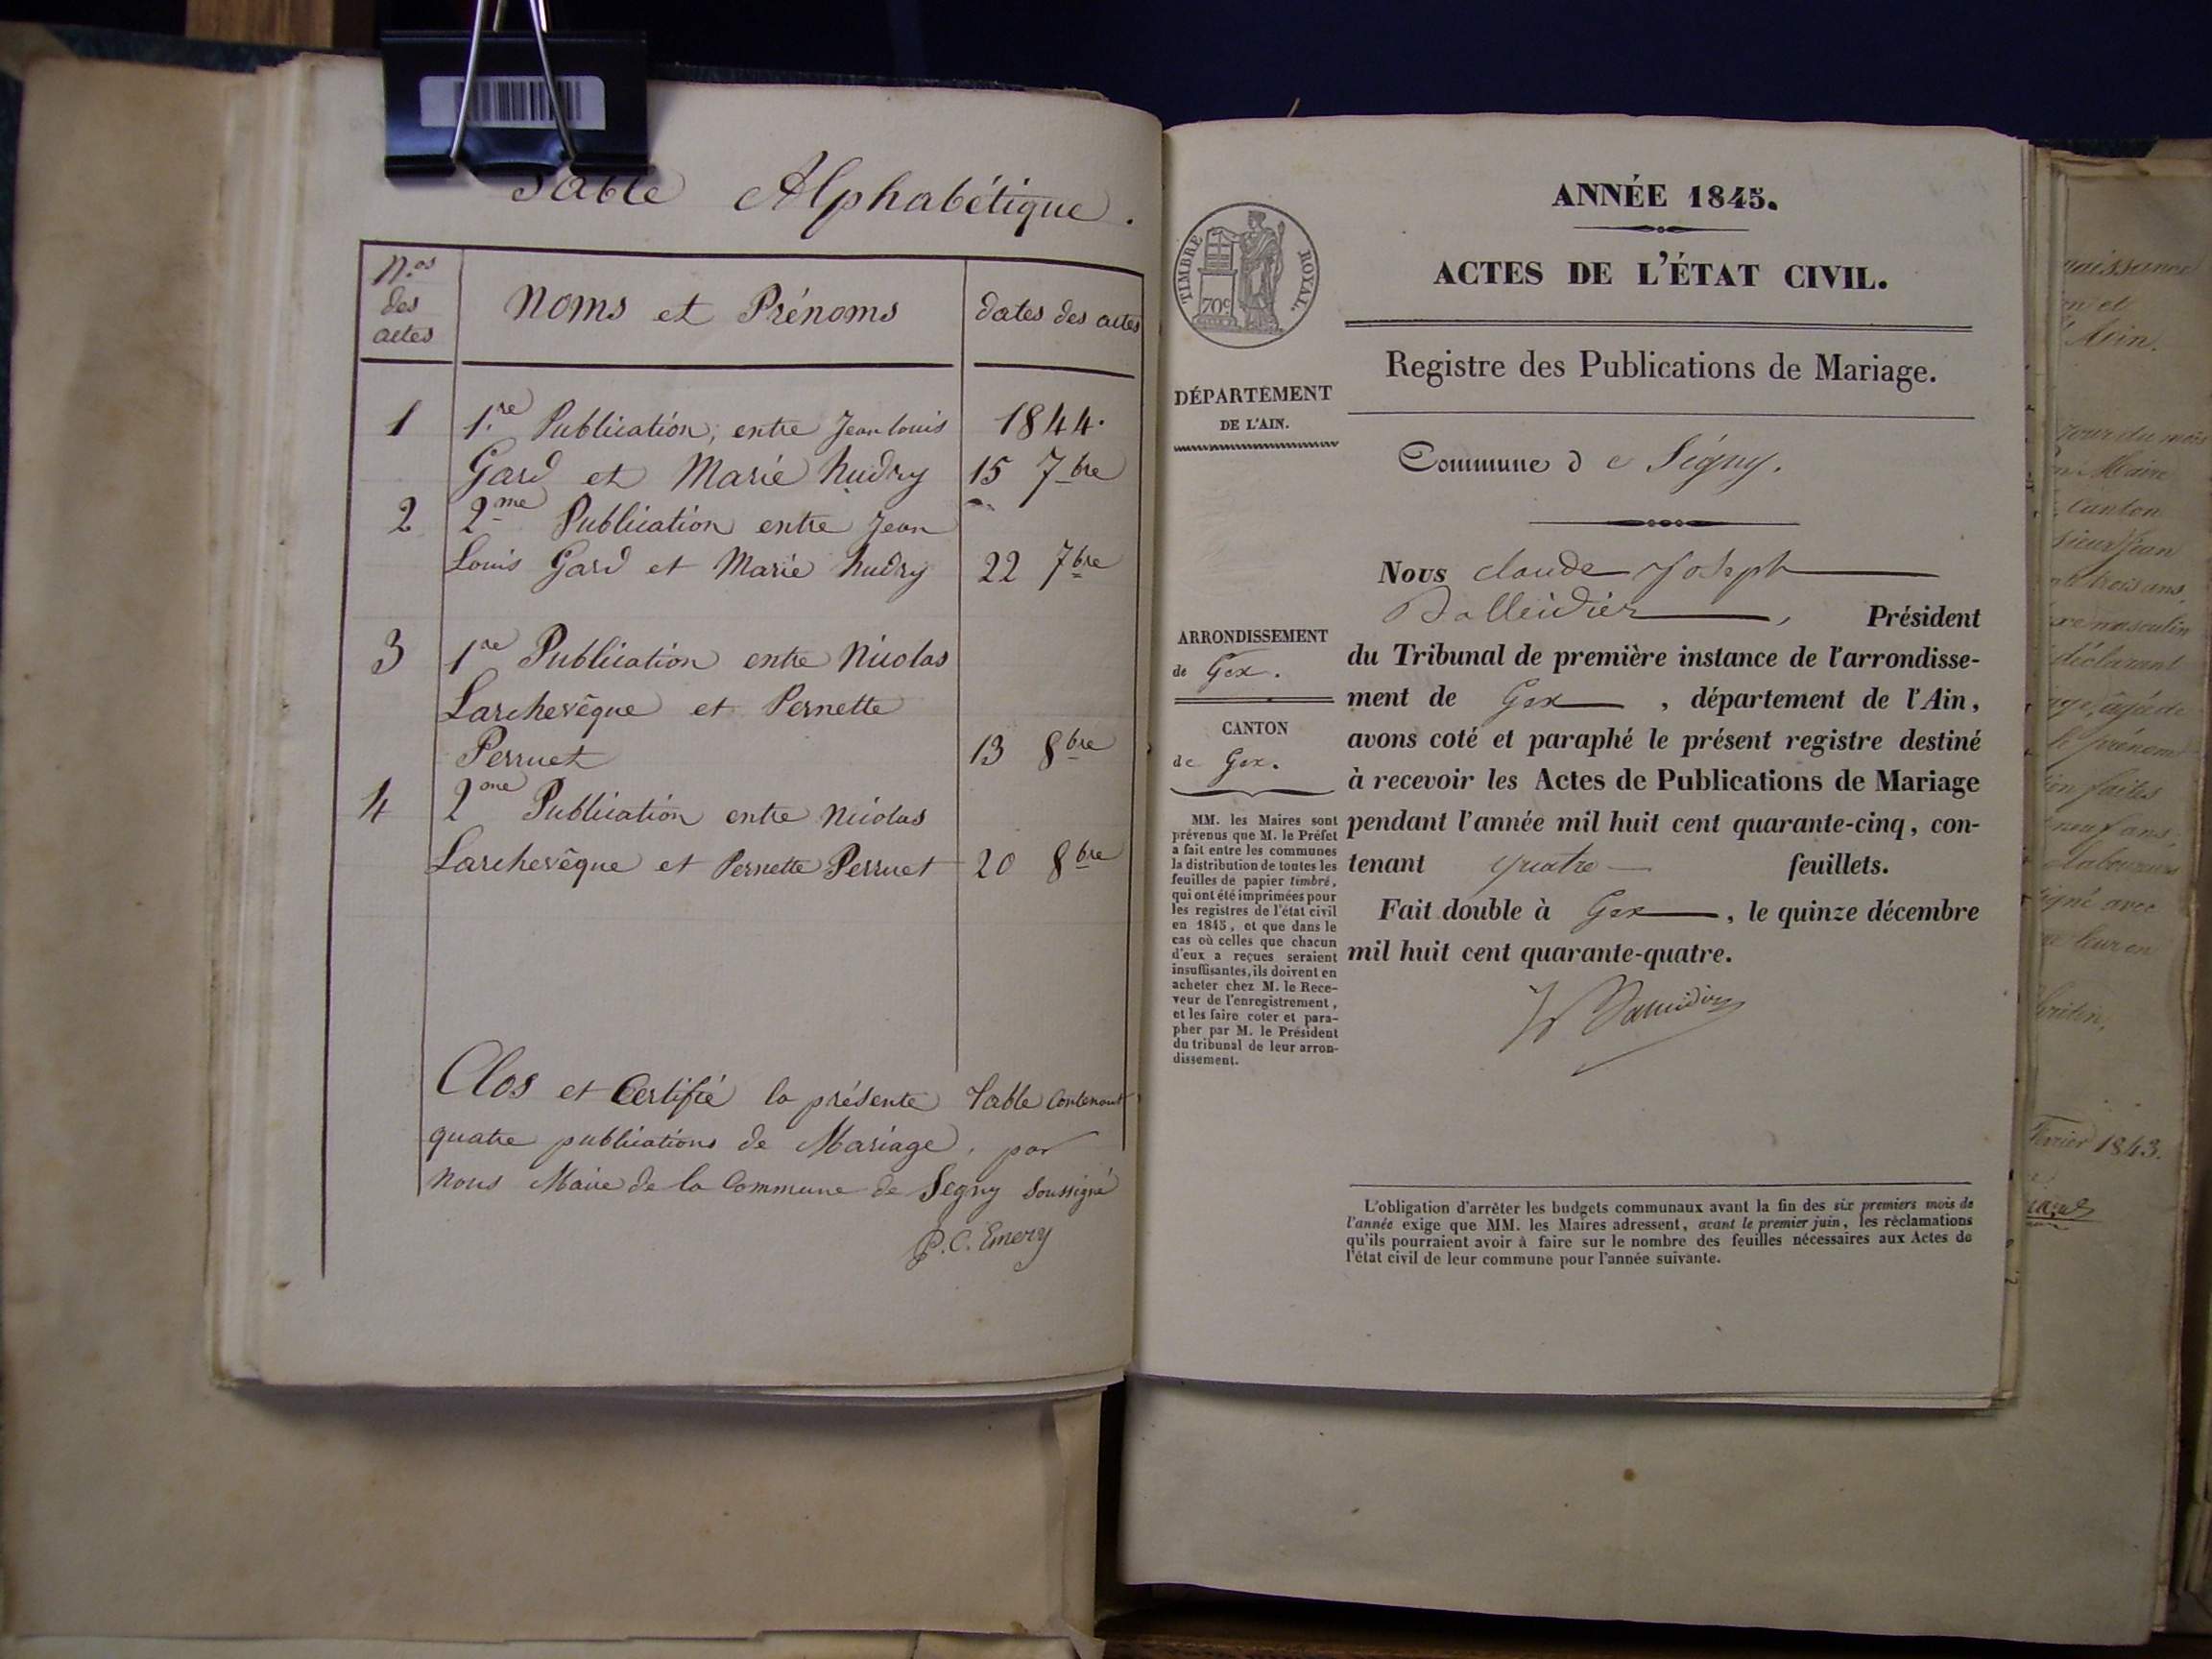 Table Alphabétique.
N.os des actes
Noms et Prénoms
dates des actes
1 1.re Publication, entre Jean louis 1844.
Gard et Marie hudry 15 7bre
2 2me Publication entre Jean
Louis Gard et Marie hudry 22 7bre
3 1re Publication entre Nicolas
Larchevêque et Pernette
Perruet 13 8bre
4 2me Publication entre Nicolas
Larchevêque et Pernette Perruet 20 8bre
Clos et Certifié la présente Table Contenant
quatre publications de Mariage, par
nous Maire de la Commune de Segny Soussigné
P. C. Emery
ANNÉE 1845.
ACTES DE L'ÉTAT CIVIL.
Registre des Publications de Mariage.
TIMBRE ROYAL.
70c
DÉPARTEMENT
DE L'AIN.
Commune de Ségny.
ARRONDISSEMENT
de Gex.
CANTON
de Gex.
MM. les Maires sont
prévenus que M. le Préfet
a fait entre les communes
la distribution de toutes les
feuilles de papier timbré,
qui ont été imprimées pour
les registres de l'état civil
en 1845, et que dans le
cas où celles que chacun
d'eux a reçues seraient
insuffisantes, ils doivent en
acheter chez M. le Rece-
veur de l'enregistrement,
et les faire coter et para-
pher par M. le Président
du tribunal de leur arron-
dissement.
Nous claude Joseph
Balleidier, Président
du Tribunal de première instance de l'arrondisse-
ment de Gex, département de l'Ain,
avons coté et paraphé le présent registre destiné
à recevoir les Actes de Publications de Mariage
pendant l'année mil huit cent quarante-cinq, con-
tenant quatre feuillets.
Fait double à Gex, le quinze décembre
mil huit cent quarante-quatre.
L'obligation d'arrêter les budgets communaux avant la fin des six premiers mois de
l'année exige que MM. les Maires adressent, avant le premier juin, les réclamations
qu'ils pourraient avoir à faire sur le nombre des feuilles nécessaires aux Actes de
l'état civil de leur commune pour l'année suivante.
naissance
en et
Ain.
jour du mois
Maire
Canton
sieur Jean
trois ans,
masculin
déclarant
prénom
faites
neuf ans,
signé avec
leur en
1843.